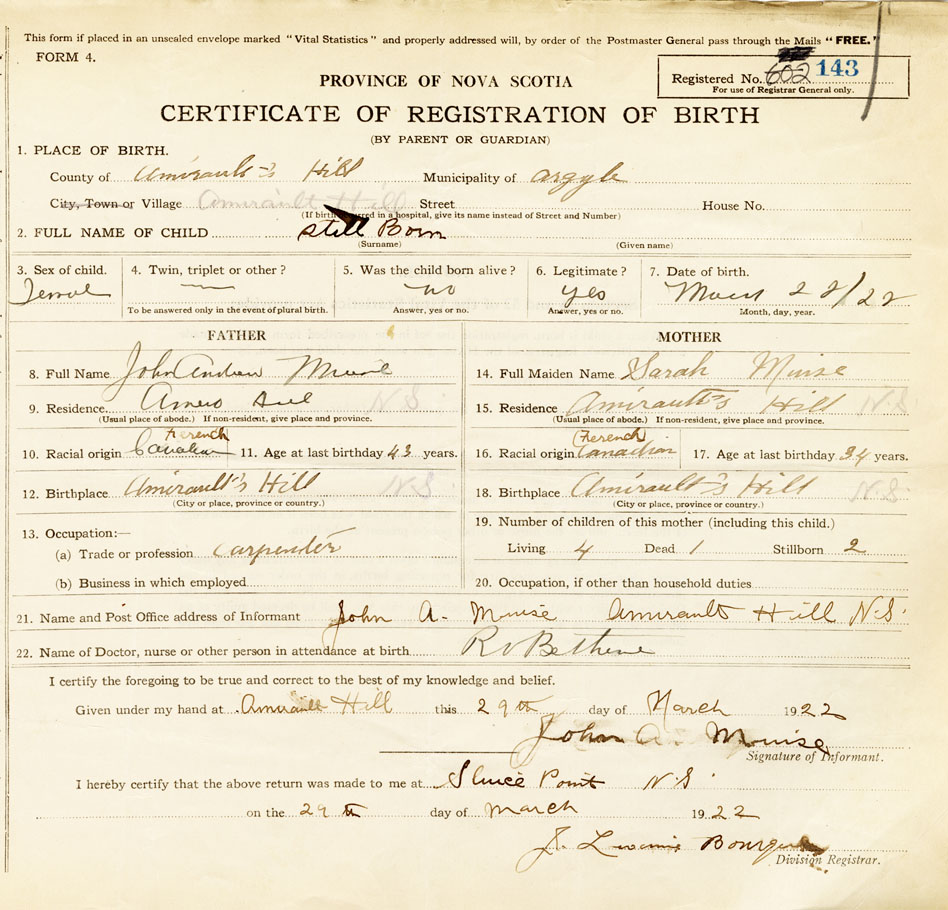 This form if placed in an unsealed envelope marked "Vital Statistics" and properly addressed will, by order of the Postmaster General pass through the Mails "FREE."
FORM 4.
PROVINCE OF NOVA SCOTIA
Registered No. 602 143
For use of Registrar General only.
CERTIFICATE OF REGISTRATION OF BIRTH
(BY PARENT OR GUARDIAN)
1. PLACE OF BIRTH.
County of Amirault's Hill Municipality of Argyle
City, Town or Village Amirault Hill Street House No.
(If birth occurred in a hospital, give its name instead of Street and Number)
2. FULL NAME OF CHILD Still Born
(Surname) (Given name)
3. Sex of child. 4. Twin, triplet or other? 5. Was the child born alive? 6. Legitimate? 7. Date of birth.
no yes 22/22
To be answered only in the event of plural birth. Answer, yes or no. Answer, yes or no. Month, day, year.
FATHER MOTHER
8. Full Name John Andrew 14. Full Maiden Name Sarah Muise
9. Residence N S 15. Residence Amirault's Hill N S
(Usual place of abode.) If non-resident, give place and province. (Usual place of abode.) If non-resident, give place and province.
French (French)
10. Racial origin Canadian 11. Age at last birthday 43 years. 16. Racial origin Canadian 17. Age at last birthday 34 years.
12. Birthplace Amirault's Hill N S 18. Birthplace Amirault's Hill N S
(City or place, province or country.) (City or place, province or country.)
13. Occupation:— 19. Number of children of this mother (including this child.)
(a) Trade or profession Carpenter Living 4 Dead 1 Stillborn 2
(b) Business in which employed 20. Occupation, if other than household duties
21. Name and Post Office address of Informant John A. Muise Amirault Hill N.S.
22. Name of Doctor, nurse or other person in attendance at birth Bethune
I certify the foregoing to be true and correct to the best of my knowledge and belief.
Given under my hand at Amirault Hill this 29th day of March 1922
John A. Muise
Signature of Informant.
I hereby certify that the above return was made to me at Sluice Point N.S.
on the 29th day of March 1922
Division Registrar.